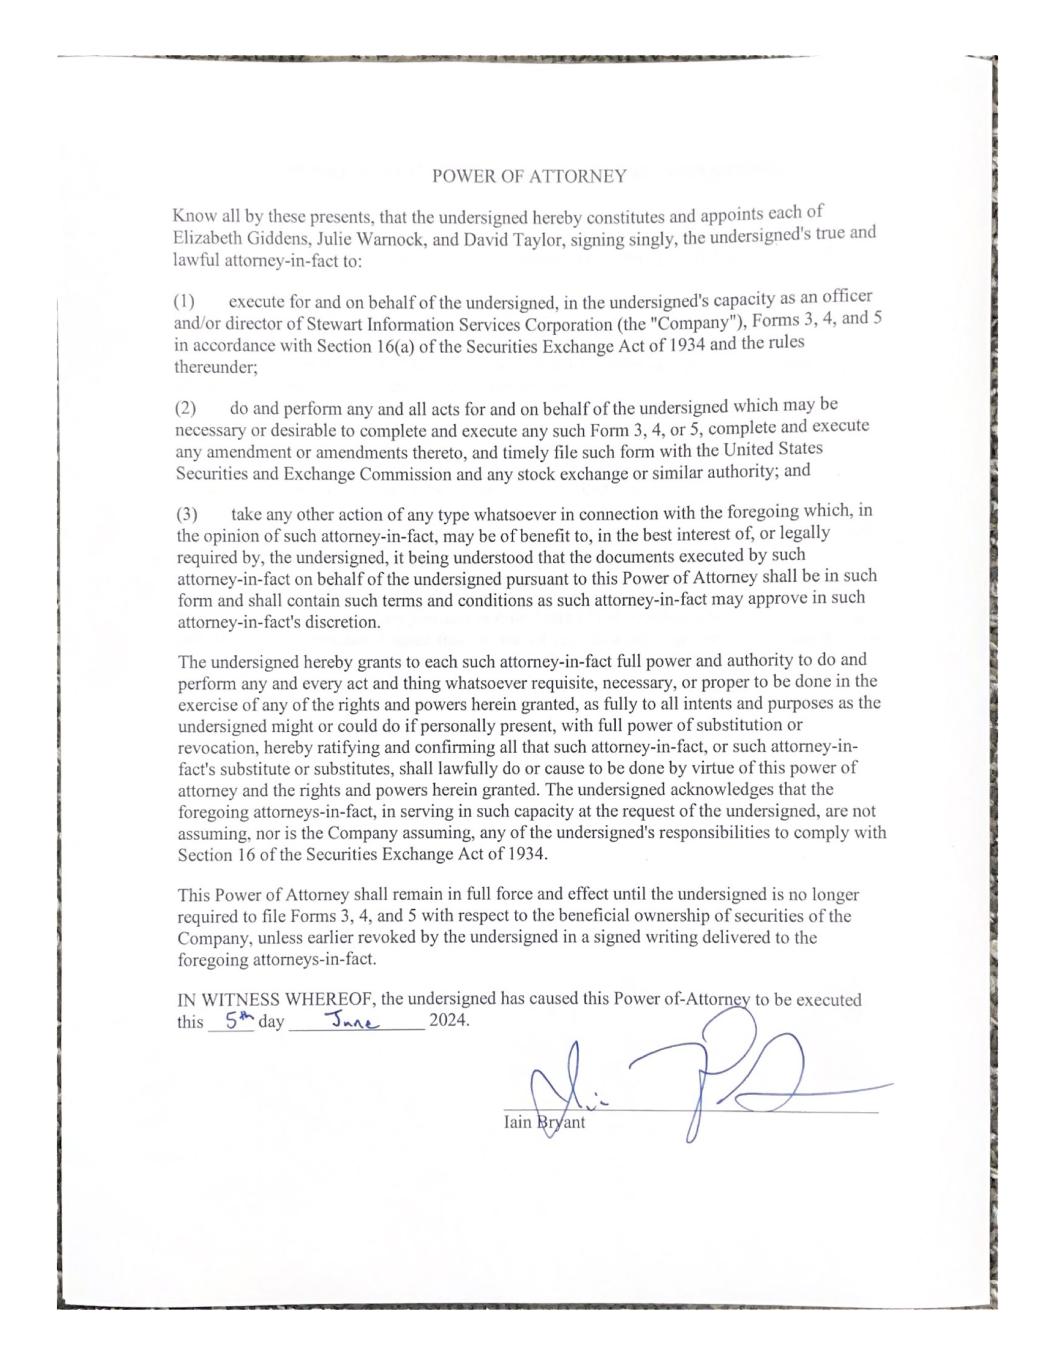 POWER OF ATTORNEY
Know all by these presents, that the undersigned hereby constitutes and appoints each of
Elizabeth Giddens, Julie Warnock, and David Taylor, signing singly, the undersigned's true and
lawful attorney-in-fact to:
(1) execute for and on behalf of the undersigned, in the undersigned's capacity as an officer
and/or director of Stewart Information Services Corporation (the "Company"), Forms 3, 4, and 5
in accordance with Section 16(a) of the Securities Exchange Act of 1934 and the rules
thereunder;
(2) do and perform any and all acts for and on behalf of the undersigned which may be
necessary or desirable to complete and execute any such Form 3, 4, or 5, complete and execute
any amendment or amendments thereto, and timely file such form with the United States
Securities and Exchange Commission and any stock exchange or similar authority; and
(3) take any other action of any type whatsoever in connection with the foregoing which, in
the opinion of such attorney-in-fact, may be of benefit to, in the best interest of, or legally
required by, the undersigned, it being understood that the documents executed by such
attorney-in-fact on behalf of the undersigned pursuant to this Power of Attorney shall be in such
form and shall contain such terms and conditions as such attorney-in-fact may approve in such
attorney-in-fact's discretion.
The undersigned hereby grants to each such attorney-in-fact full power and authority to do and
perform any and every act and thing whatsoever requisite, necessary, or proper to be done in the
exercise of any of the rights and powers herein granted, as fully to all intents and purposes as the
undersigned might or could do if personally present, with full power of substitution or
revocation, hereby ratifying and confirming all that such attorney-in-fact, or such attorney-in-
fact's substitute or substitutes, shall lawfully do or cause to be done by virtue of this power of
attorney and the rights and powers herein granted. The undersigned acknowledges that the
foregoing attorneys-in-fact, in serving in such capacity at the request of the undersigned, are not
assuming, nor is the Company assuming, any of the undersigned's responsibilities to comply with
Section 16 of the Securities Exchange Act of 1934.
This Power of Attorney shall remain in full force and effect until the undersigned is no longer
required to file Forms 3, 4, and 5 with respect to the beneficial ownership of securities of the
Company, unless earlier revoked by the undersigned in a signed writing delivered to the
foregoing attorneys-in-fact.
IN WITNESS WHEREOF, the undersigned has caused this Power of-Attorney to be executed
this 5th day June 2024.
Iain Bryant